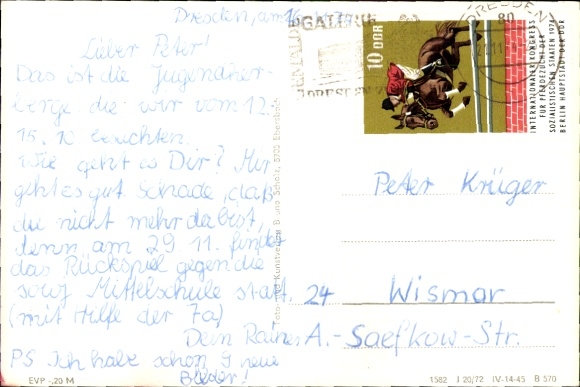 Dresden, am 16.
Lieber Peter!
Das ist die Jugendher
berge die wir vom 12.
15. 10 besuchten.
Wie geht es Dir? Mir
geht es gut Schade, daß
du nicht mehr da bist,
denn am 29 11. findet
das Rückspiel gegen die
sowj Mittelschule statt.
(mit Hilfe der 7a)
Dein Rainer
PS Ich habe schon 9 neue
Bilder!
EVP -,20 M
GALERIE
DRESDEN
DRESDEN
80
10 DDR
INTERNATIONALER KONGRESS
FÜR PFERDEZUCHT DER
SOZIALISTISCHEN STAATEN 1974
BERLIN HAUPTSTADT DER DDR
Foto und Kunstverlag B und Scholz, 8705 Ebersbach
Peter Krüger
24 Wismar
A.-Saefkow-Str.
1582 I 20/72 IV-14-45 B 570